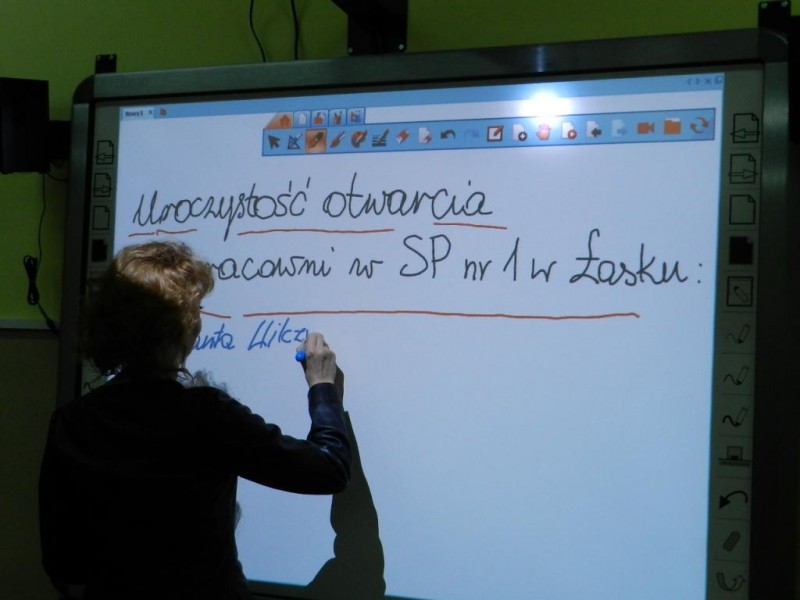 Uroczystość otwarcia
racowni w SP nr 1 w Łasku: